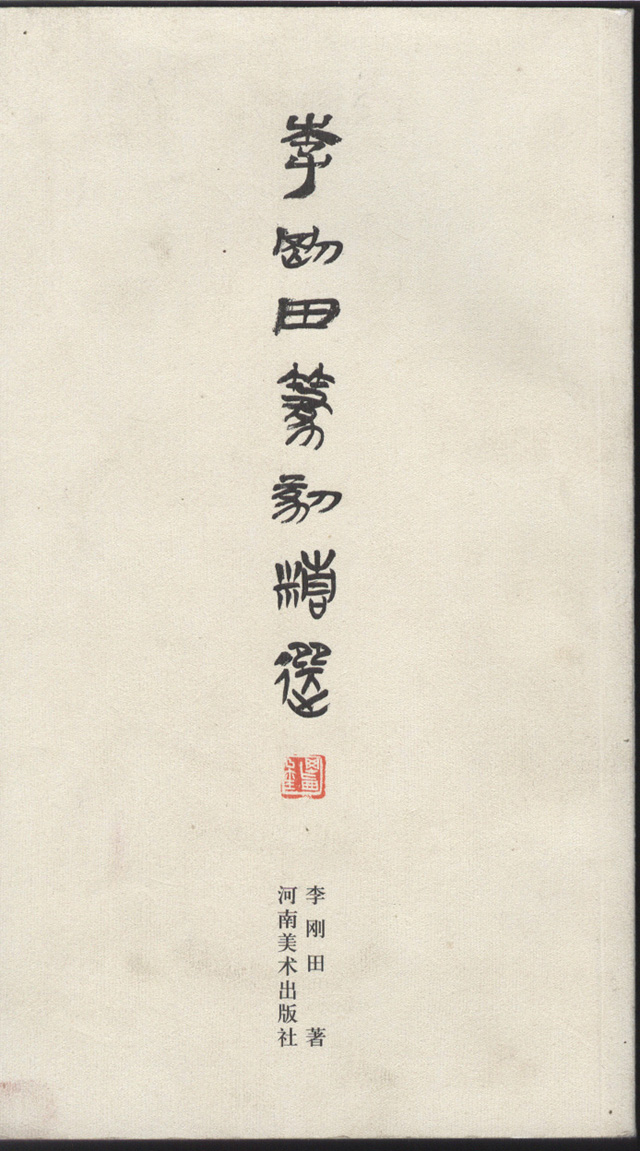 李刚田篆刻精選
李刚田 著
河南美术出版社